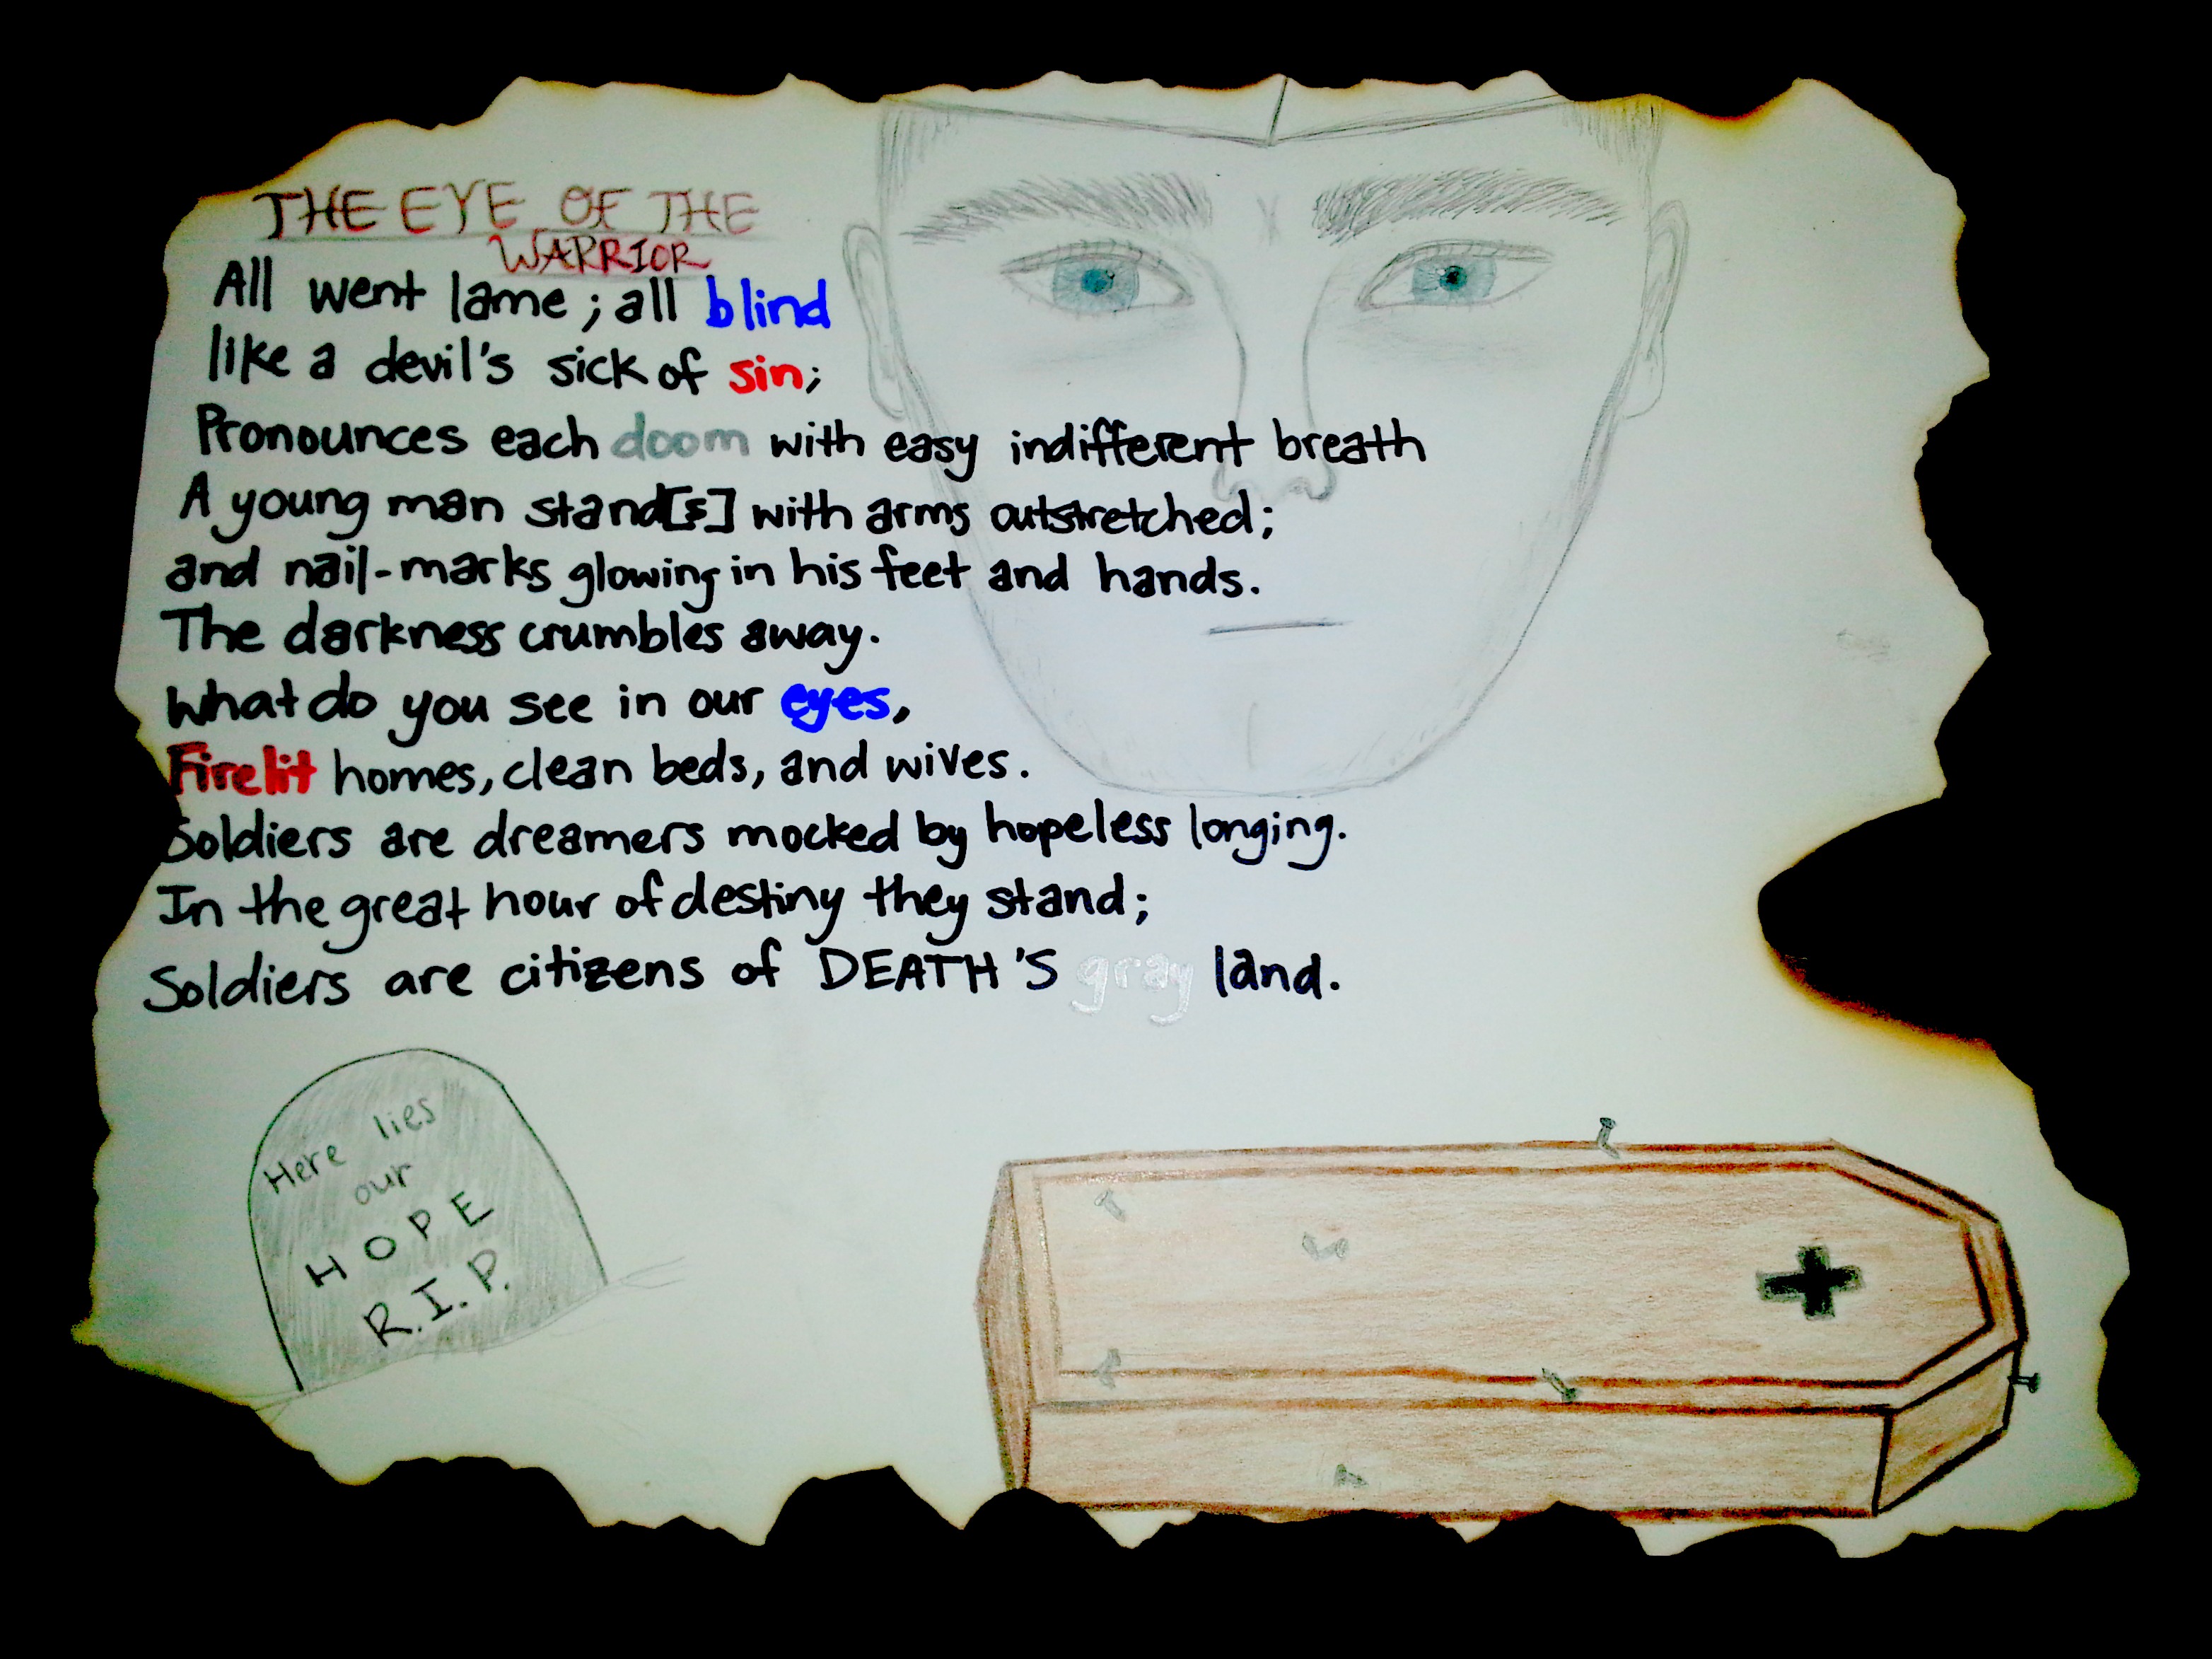 THE EYE OF THE
WARRIOR
All went lame; all blind
like a devil's sick of sin;
Pronounces each doom with easy indifferent breath
A young man stand[s] with arms outstretched;
and nail-marks glowing in his feet and hands.
The darkness crumbles away.
What do you see in our eyes,
Firelit homes, clean beds, and wives.
Soldiers are dreamers mocked by hopeless longing.
In the great hour of destiny they stand;
Soldiers are citizens of DEATH'S gray land.
Here lies
our
HOPE
R.I.P.